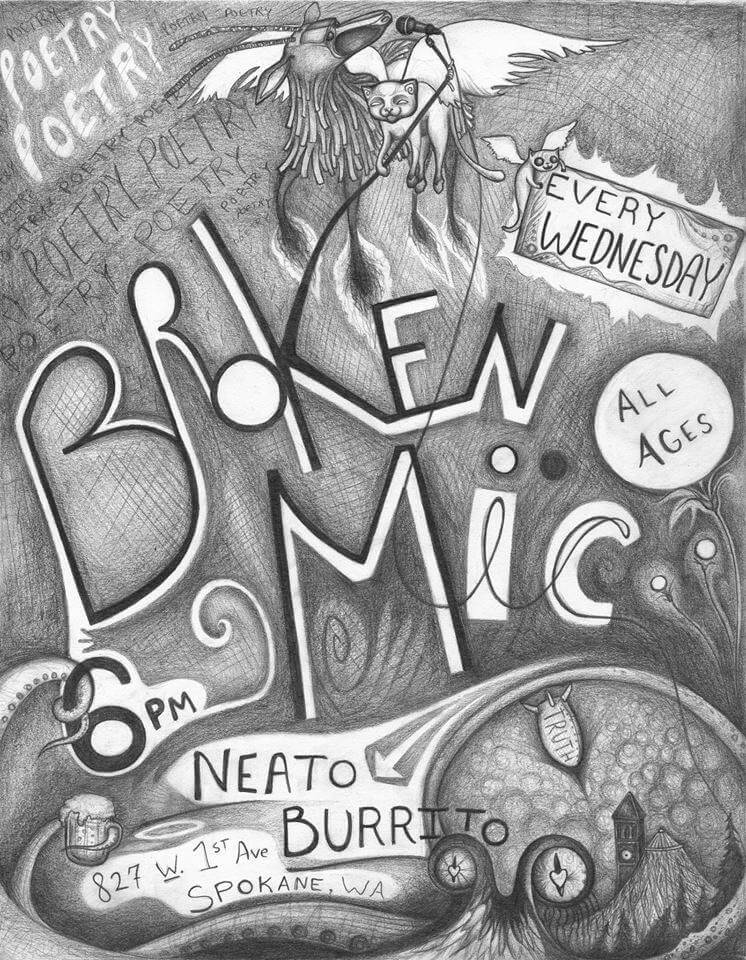 POETRY
POETRY
POETRY
POETRY
POETRY
POETRY
POETRY POETRY
POETRY POETRY
POETRY
EVERY
WEDNESDAY
BROKEN
MiC
ALL
AGES
6PM
TRUTH
NEATO
BURRITO
827 W. 1ST AVE
SPOKANE, WA